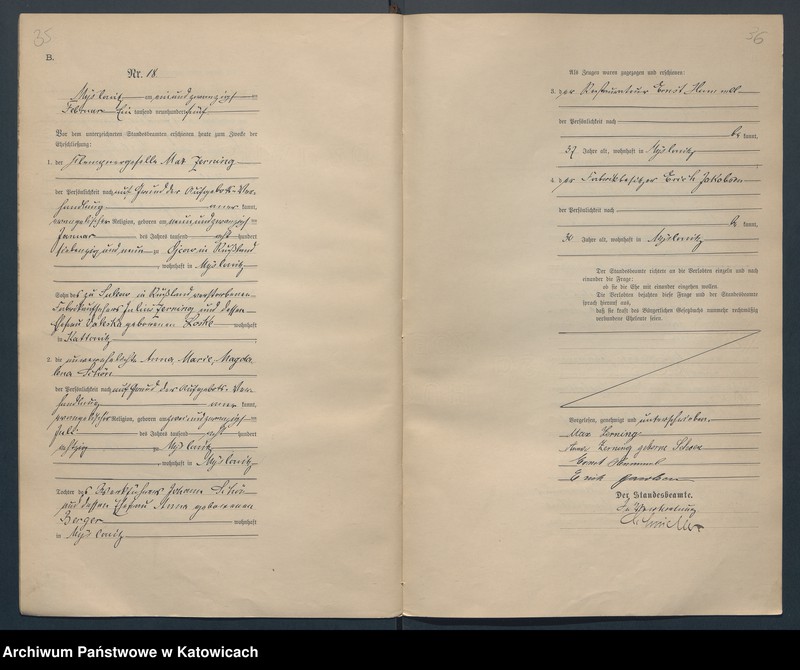 35
B.
Nr. 18
Myslowitz am einundzwanzigsten
Februar Ein tausend neunhundert fünf
Vor dem unterzeichneten Standesbeamten erschienen heute zum Zwecke der
Eheschließung:
1. der Klempnergeselle Max Zerning
der Persönlichkeit nach auf Grund der Aufgebots-Ver-
handlung aner kannt,
evangelischer Religion, geboren am neunundzwanzigsten
Januar des Jahres tausend acht hundert
siebenzig und neun zu in Rußland
, wohnhaft in Myslowitz
Sohn des zu in Rußland verstorbenen
Julius Zerning und dessen
Ehefrau geborenen wohnhaft
in Kattowitz
2. die unverehelichte Anna Marie Magda-
lena Schön
der Persönlichkeit nach auf Grund der Aufgebots-Ver-
handlung aner kannt,
evangelischer Religion, geboren am zweiundzwanzigsten
Juli des Jahres tausend acht hundert
achtzig zu Myslowitz
, wohnhaft in Myslowitz
Tochter des Johann Schön
und dessen Ehefrau Anna geborenen
Berger wohnhaft
in Myslowitz
36
Als Zeugen waren zugezogen und erschienen:
3. der Restaurateur Ernst Hummel
der Persönlichkeit nach
be kannt,
37 Jahre alt, wohnhaft in Myslowitz
4. der Fabrikbesitzer Erich
der Persönlichkeit nach
be kannt,
30 Jahre alt, wohnhaft in Myslowitz
Der Standesbeamte richtete an die Verlobten einzeln und nach
einander die Frage:
ob sie die Ehe mit einander eingehen wollen.
Die Verlobten bejahten diese Frage und der Standesbeamte
sprach hierauf aus,
daß sie kraft des Bürgerlichen Gesetzbuchs nunmehr rechtmäßig
verbundene Eheleute seien.
Vorgelesen, genehmigt und unterschrieben.
Max Zerning
Zerning geborne Schoen
Ernst Hummel
Erich
Der Standesbeamte.
In Vertretung
Archiwum Państwowe w Katowicach